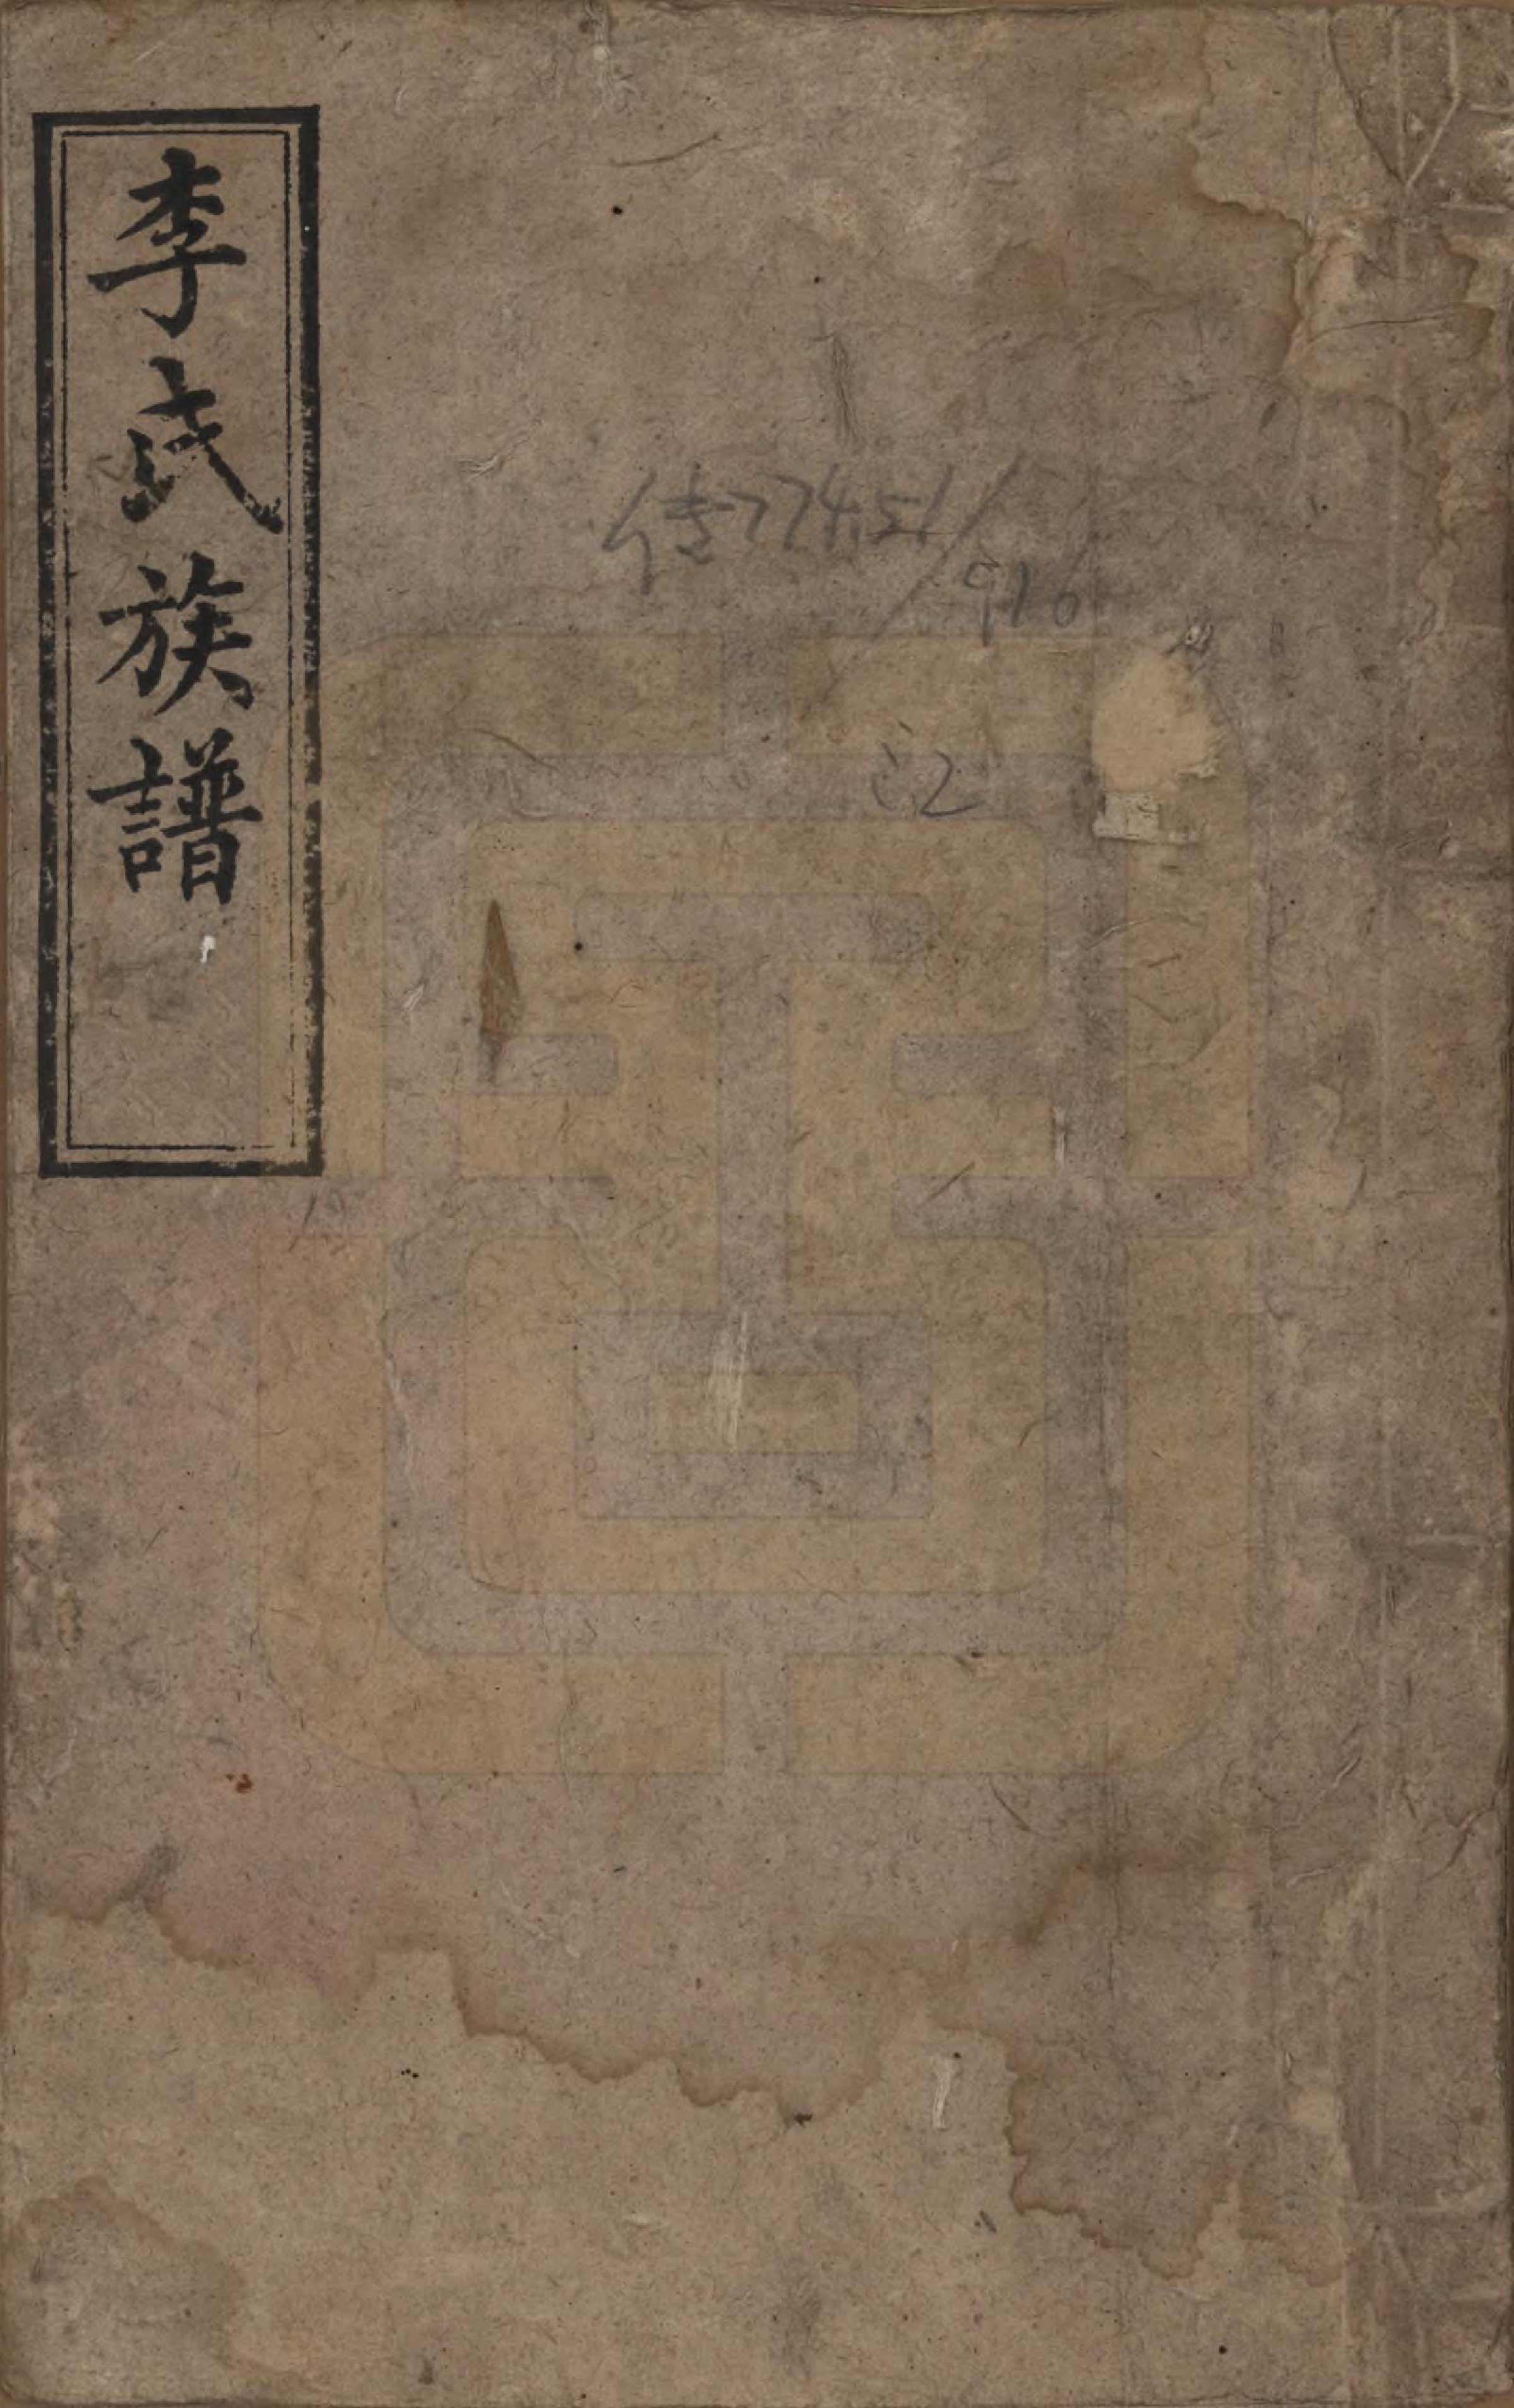 李氏族譜
传774.51/
916
:2